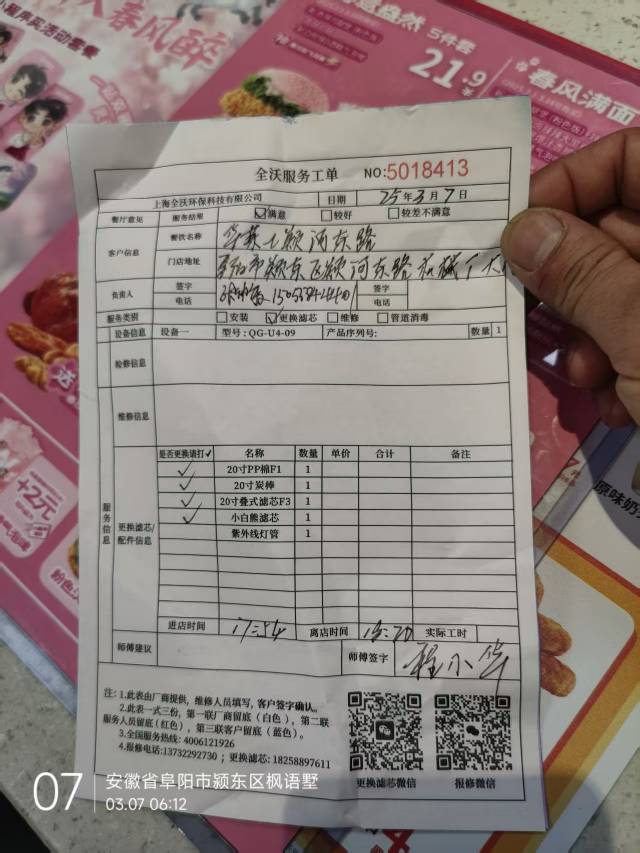 小程序买活动套餐
春风醉
意盎然
5件套
21.9
春风满面
全沃服务工单 NO:5018413
上海全沃环保科技有限公司 日期 25年3月7日
餐厅意见 服务结果 ☑满意 □较好 □较差不满意
客户信息 餐饮名称 华莱士颍河东路
门店地址 阜阳市颍东区颍河东路
负责人 签字 签字
电话 电话
服务类别 □安装 ☑更换滤芯 □维修 □管道消毒
设备信息 设备一 型号:QG-U4-09 产品序列号: 数量 1
检修信息
维修信息
服务信息 更换滤芯/配件信息
是否更换请打✓ 名称 数量 单价 合计 备注
✓ 20寸PP棉F1 1
✓ 20寸炭棒 1
✓ 20寸叠式滤芯F3 1
✓ 小白熊滤芯 1
紫外线灯管 1
进店时间 17:54 离店时间 实际工时
师傅建议 师傅签字 程小华
注: 1.此表由厂商提供，维修人员填写，客户签字确认。
2.此表一式三份，第一联厂商留底（白色），第二联
服务人员留底(红色)，第三联客户留底（蓝色）。
3.全国服务热线: 4006121926
4.报修电话:13732292730; 更换滤芯: 18258897611
更换滤芯微信 报修微信
送
+2元
粉色
原味奶
07 安徽省阜阳市颍东区枫语墅
03.07 06:12